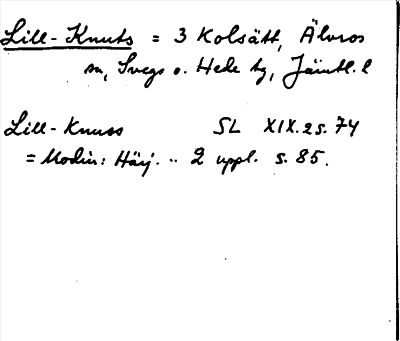 Lill-Knuts = 3 Kolsätt, Älvros
sn, Svegs o. Hede tg, Jämtl. l
Lill-Knuss SL XIX.2 s. 74
= Modin: Härj. .. 2 uppl. s. 85.